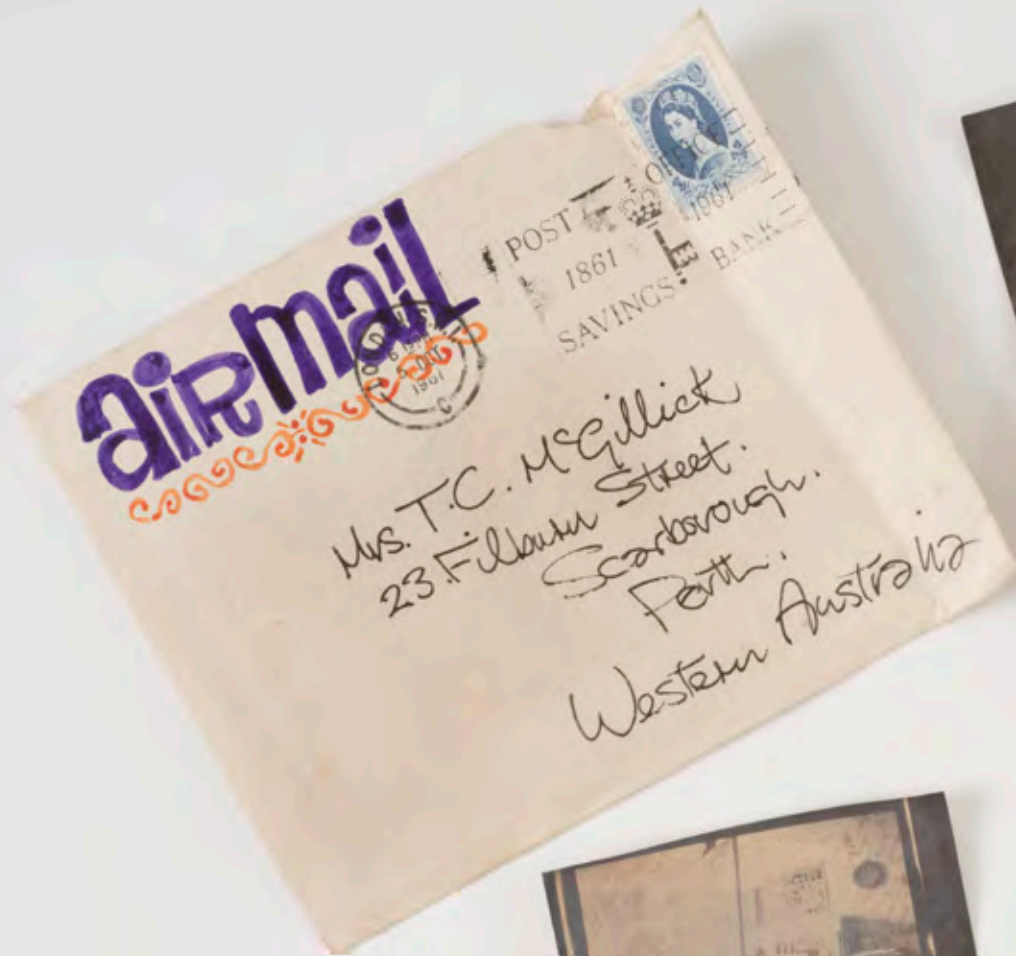 airmail
POST OFFICE
1861 1961
SAVINGS BANK
LONDON
1961
C
Mrs. T.C. McGillick
23 Filburn Street.
Scarborough.
Perth.
Western Australia